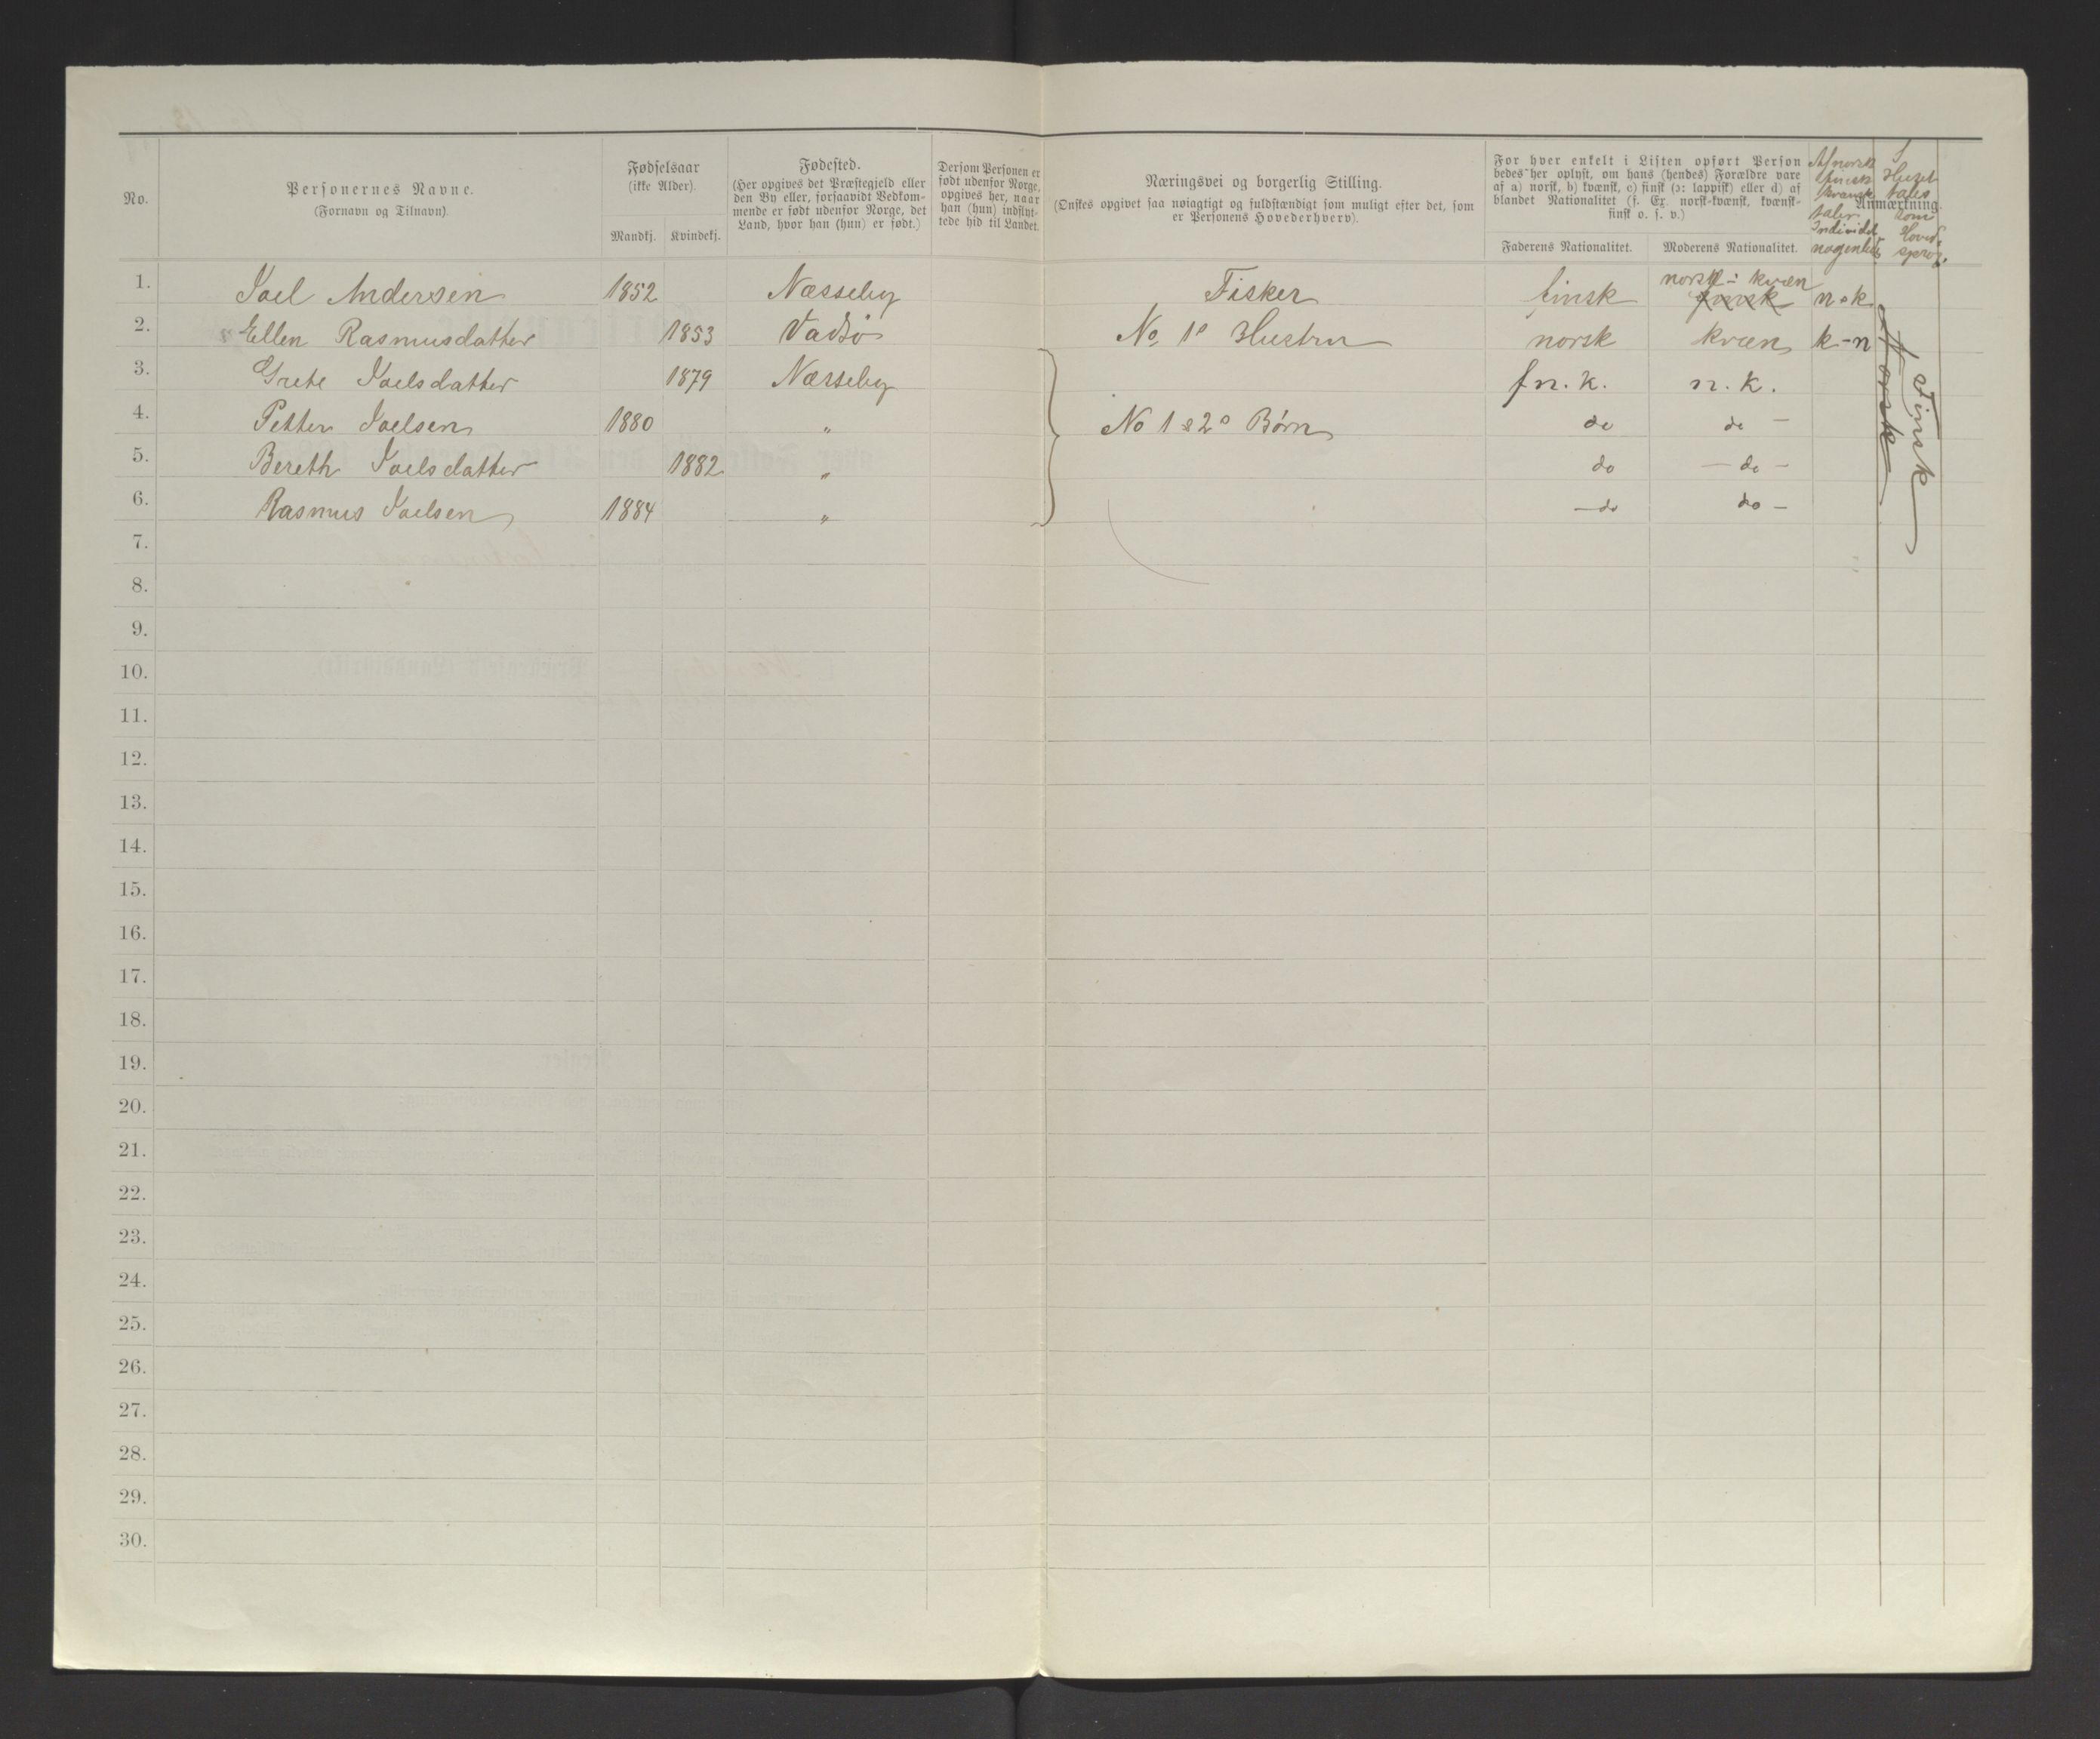 No.
Personernes Navne.
(Fornavn og Tilnavn).
Fødselsaar
(ikke Alder).
Mandkj. Kvindekj.
Fødested.
(Her opgives det Præstegjeld eller
den By eller, forsaavidt Vedkom-
mende er født udenfor Norge, det
Land, hvor han (hun) er født.)
Dersom Personen er
født udenfor Norge,
opgives her, naar
han (hun) indflyt-
tede hid til Landet.
Næringsvei og borgerlig Stilling.
(Ønskes opgivet saa nøiagtigt og fuldstændigt som muligt efter det, som
er Personens Hovederhverv).
For hver enkelt i Listen opført Person
bedes her oplyst, om hans (hendes) Forældre vare
af a) norsk, b) kvænsk, c) finsk (ɔ: lappisk) eller d) af
blandet Nationalitet (f. Ex. norsk-kvænsk, kvænsk-
finsk o. s. v.)
Faderens Nationalitet. Moderens Nationalitet.
Anmærkning.
Af norsk
finsk
kvænsk
taler
Individet
nogenledes
I
Huset
tales
som
Hoved-
sprog.
1. Joel Andersen 1852 Næsseby Fisker finsk norsk-kvæn finsk n-k
2. " Ellen Rasmusdatter 1853 Vadsø No 1s Hustru norsk kvæn k-n
3. Grete Joelsdatter 1879 Næsseby fn.k. n.k.
4. Petter Joelsen 1880 " No 1 & 2s Børn do do -
5. Bereth Joelsdatter 1882 " do - do -
6. Rasmus Joelsen 1884 " - do do -
Norsk
Finsk
7.
8.
9.
10.
11.
12.
13.
14.
15.
16.
17.
18.
19.
20.
21.
22.
23.
24.
25.
26.
27.
28.
29.
30.